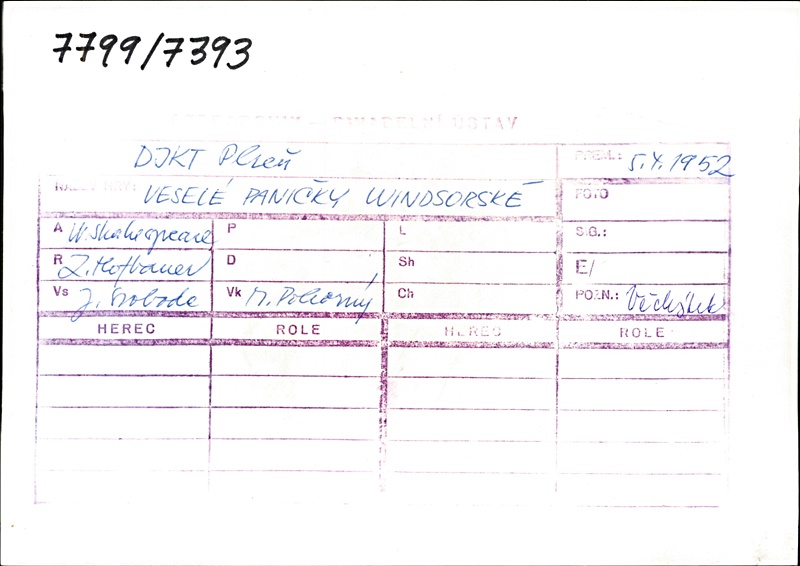 7799/7393
DIVADELNÍ ÚSTAV
DJKT Plzeň PREM.: 5.4.1952
VESELÉ PANIČKY WINDSORSKÉ FOTO
A W. Shakespeare P L SIG.:
R Z. Hofbauer D Sh E/
Vs J. Svoboda Vk M. Pokorný Ch POZN.:
HEREC ROLE HEREC ROLE